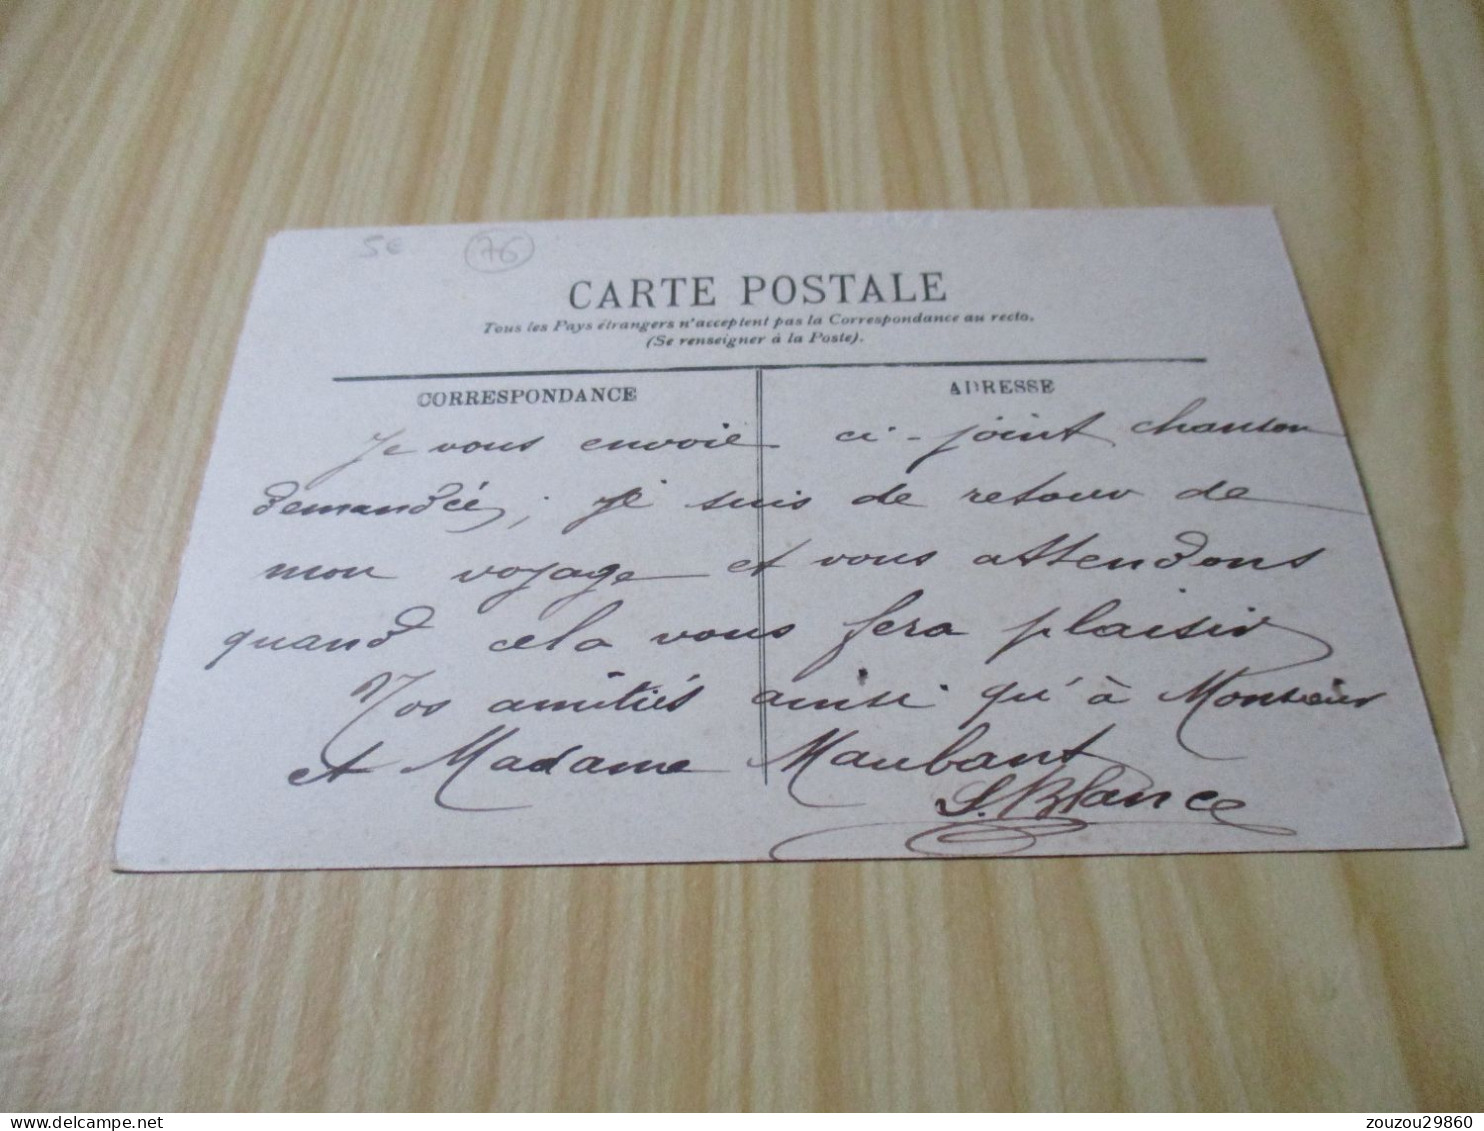 5€ 76
CARTE POSTALE
Tous les Pays étrangers n'acceptent pas la Correspondance au recto.
(Se renseigner à la Poste).
CORRESPONDANCE
ADRESSE
Je vous envoie ci-joint chanson
demandée, ; je suis de retour de
mon voyage et vous attendons
quand cela vous fera plaisir
Nos amitiés ainsi qu'à Monsieur
et Madame Maubant
L. Blance
zouzou29860